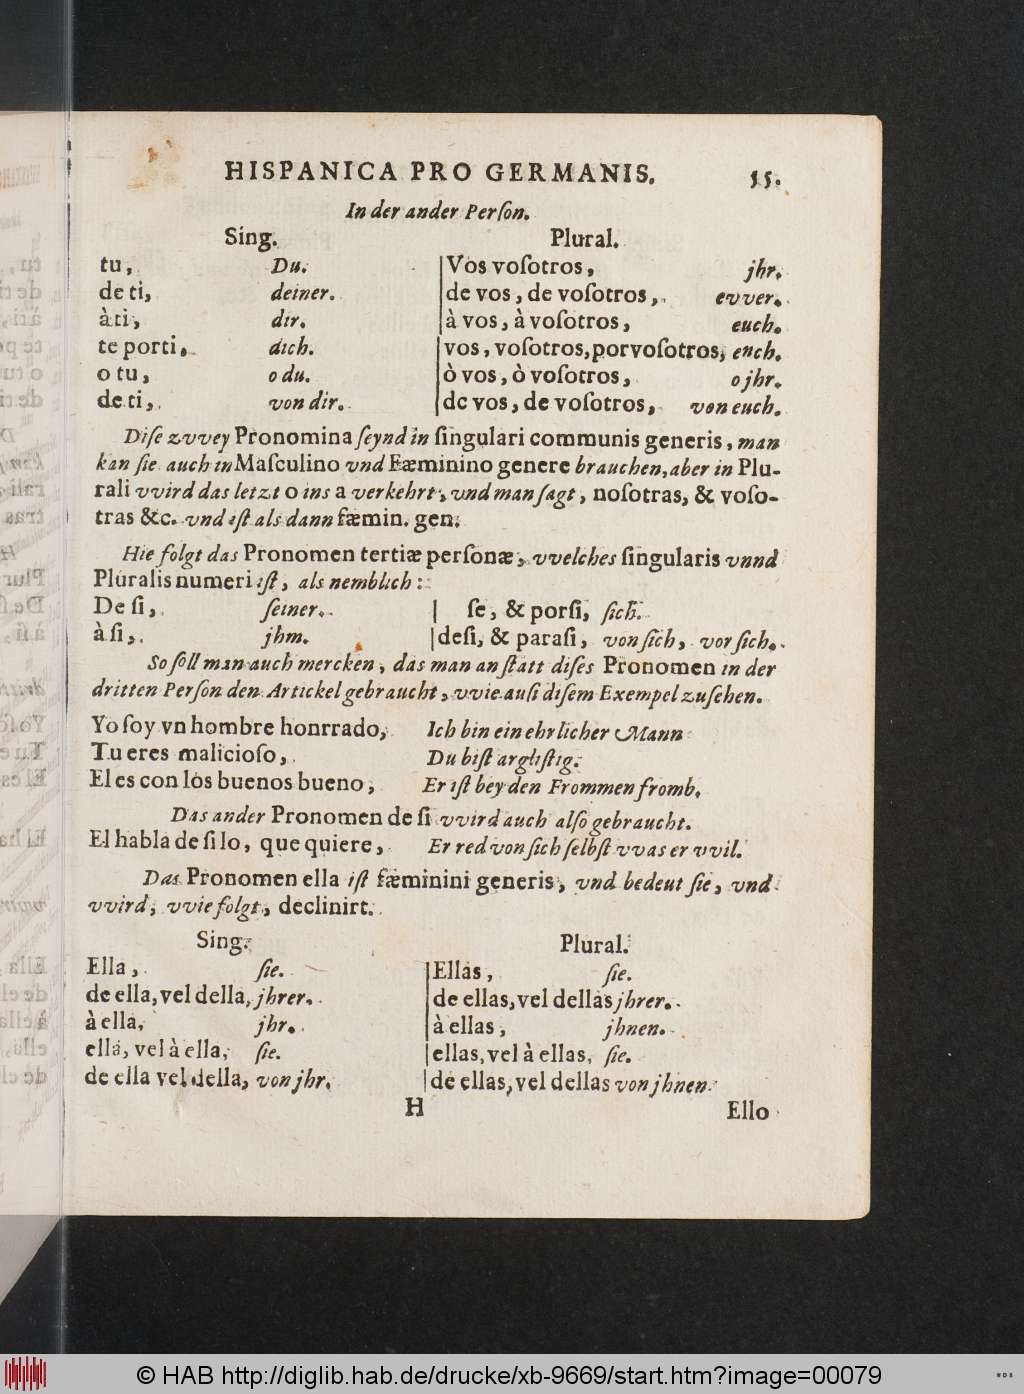 HISPANICA PRO GERMANIS. 55.
In der ander Perſon.
Sing. Plural.
tu, Du. Vos voſotros, jhr.
de ti, deiner. de vos, de voſotros, evver.
à ti, dir. à vos, à voſotros, euch.
te porti, dich. vos, voſotros, porvoſotros, ench.
o tu, o du. ò vos, ò voſotros, o jhr.
de ti, von dir. de vos, de voſotros, von euch.
Diſe zvvey Pronomina ſeynd in ſingulari communis generis, man
kan ſie auch in Maſculino vnd Fæminino genere brauchen, aber in Plu-
rali vvird das letzt o ins a verkehrt, vnd man ſagt, noſotras, & voſo-
tras &c. vnd iſt als dann fæmin. gen.
Hie folgt das Pronomen tertiæ perſonæ, vvelches ſingularis vnnd
Pluralis numeri iſt, als nemblich:
De ſi, ſeiner. ſe, & porſi, ſich.
à ſi, jhm. deſi, & paraſi, von ſich, vor ſich.
So ſoll man auch mercken, das man an ſtatt diſes Pronomen in der
dritten Perſon den Artickel gebraucht, vvie auſi diſem Exempel zuſehen.
Yo ſoy vn hombre honrrado, Ich bin ein ehrlicher Mann
Tu eres malicioſo, Du biſt argliſtig.
El es con los buenos bueno, Er iſt bey den Frommen fromb.
Das ander Pronomen de ſi vvird auch alſo gebraucht.
El habla de ſi lo, que quiere, Er red von ſich ſelbſt vvas er vvil.
Das Pronomen ella iſt fæminini generis, vnd bedeut ſie, vnd
vvird, vvie folgt, declinirt.
Sing. Plural.
Ella, ſie. Ellas, ſie.
de ella, vel della, jhrer. de ellas, vel dellas jhrer.
à ella, jhr. à ellas, jhnen.
ella, vel à ella, ſie. ellas, vel à ellas, ſie.
de ella vel della, von jhr. de ellas, vel dellas von jhnen.
H Ello
© HAB http://diglib.hab.de/drucke/xb-9669/start.htm?image=00079